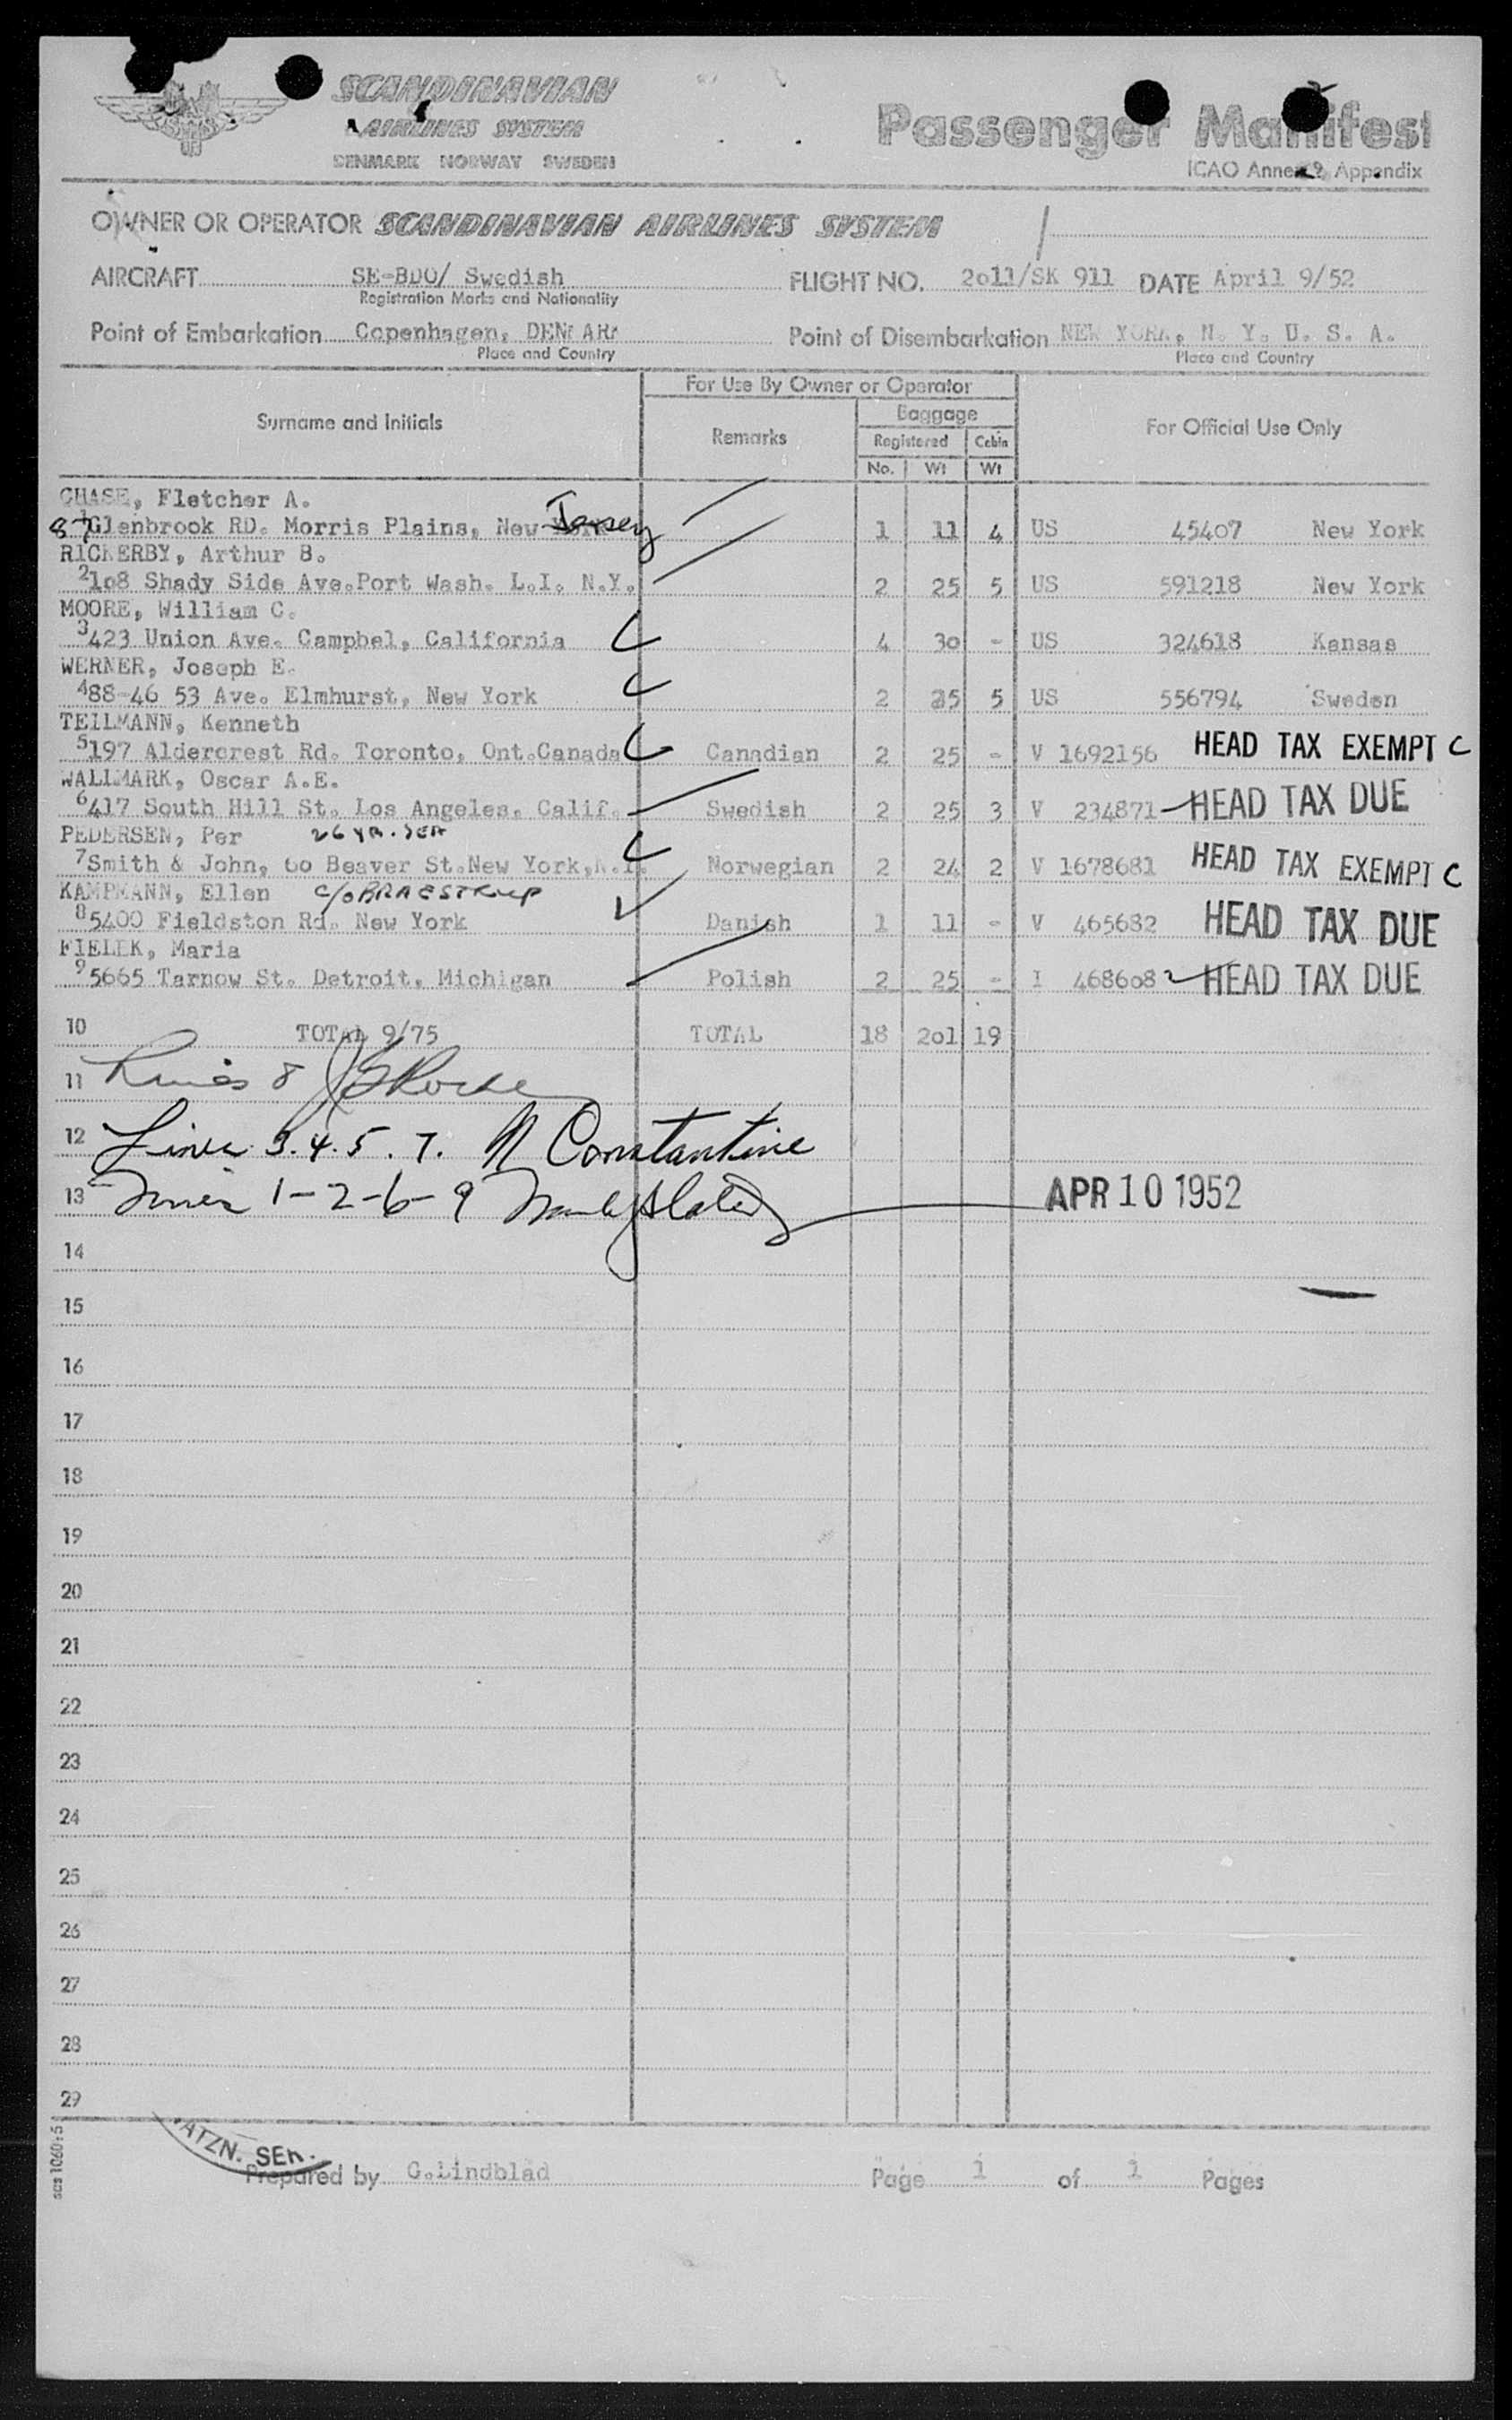 SCANDINAVIAN
AIRLINES SYSTEM
DENMARK NORWAY SWEDEN
Passenger Manifest
ICAO Annex 9, Appendix
OWNER OR OPERATOR SCANDINAVIAN AIRLINES SYSTEM
AIRCRAFT SE-BDO/ Swedish FLIGHT NO. 2o11/SK 911 DATE April 9/52
Registration Marks and Nationality
Point of Embarkation Copenhagen, DENMARK Point of Disembarkation NEW YORK, N. Y. U. S. A.
Place and Country Place and Country
For Use By Owner or Operator
Surname and Initials Remarks Baggage For Official Use Only
Registered Cabin
No. Wt Wt
CHASE, Fletcher A.
1 87 Glenbrook RD. Morris Plains, New York Jersey 1 11 4 US 45407 New York
RICKERBY, Arthur B.
2 1o8 Shady Side Ave.Port Wash. L.I. N.Y. 2 25 5 US 591218 New York
MOORE, William C.
3 423 Union Ave. Campbel, California 4 3o - US 324618 Kansas
WERNER, Joseph E.
4 88-46 53 Ave. Elmhurst, New York 2 25 5 US 556794 Sweden
TEILMANN, Kenneth
5 197 Aldercrest Rd. Toronto, Ont.Canada Canadian 2 25 - V 1692156 HEAD TAX EXEMPT C
WALLMARK, Oscar A.E.
6 417 South Hill St. Los Angeles. Calif. Swedish 2 25 3 V 234871 HEAD TAX DUE
PEDERSEN, Per 26 YR. SEA
7 Smith & John, 6o Beaver St.New York,N.Y. Norwegian 2 24 2 V 1678681 HEAD TAX EXEMPT C
KAMPMANN, Ellen C/O BRAESTRUP
8 5400 Fieldston Rd. New York Danish 1 11 - V 465682 HEAD TAX DUE
FIELEK, Maria
9 5665 Tarnow St. Detroit, Michigan Polish 2 25 - I 4686o8 HEAD TAX DUE
10 TOTAL 9/75 TOTAL 18 2o1 19
11 Lines 8
12 Lines 3.4.5.7. N Constantine
13 Lines 1-2-6-9 APR 10 1952
14
15
16
17
18
19
20
21
22
23
24
25
26
27
28
29
sas 1060:5
Prepared by G.Lindblad Page 1 of 1 Pages